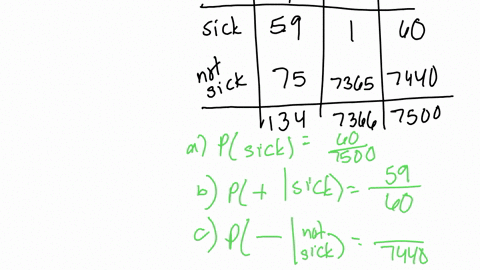 sick 59 1 60
not sick 75 7365 7440
134 7366 7500
a) P(sick) = 60/7500
b) P(+ | sick) = 59/60
c) P(− | not sick) = /7440